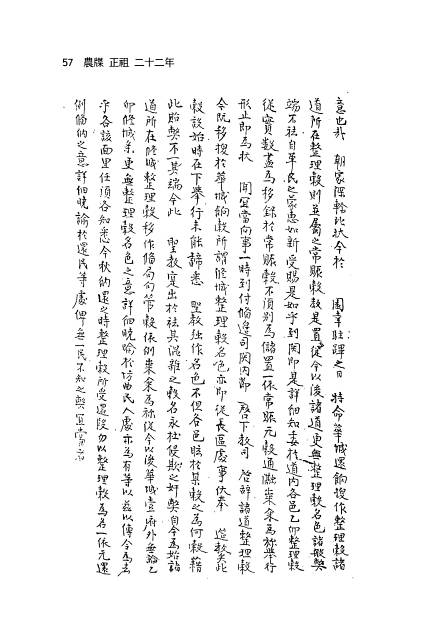 57 農牒 正祖 二十二年
意也哉 朝家深軫比狀今於 園幸駐蹕之日 特命華城還餉搜作整理穀諸
道所在整理穀則並屬之常賑穀穀是置從今以後諸道更無整理穀名色諸般弊
端不抂自革民之蒙惠如新受賜是如乎到関即是詳細知委於道內各邑乙仍整理穀
從實數盡爲移錄於常賑穀不須別爲儲置一依常賑元穀通融糶糴爲旀擧行
形止即爲狀 聞宜當向事一時到付備邊司関內節 啓下敎司 啓辭諸道整理穀
今旣移搜於華城餉穀所謂修城整理穀名色亦即從長區處事伏奉 筵敎矣此
穀設始時在下擧行未能諦悉 聖敎独作名色不但各邑眩於某穀之爲何穀藉
此貽弊不一其端今此 聖敎寔出於祛其混雜之穀名永杜侵欺之奸弊自今爲始諸
道所在修城整理穀移作備局句管穀依例糶糴爲旀從今以後華城壹府外無論乙
仍修城条更無整理穀名色之意詳細曉喩於坊曲民人處亦爲有等以玆以傳令爲去
乎各該面里任須各知悉今秋納還之時整理穀所受還段勿以整理穀爲名一依元還
例備納之意詳細曉諭於還民等處俾無一民不知之弊宜當者